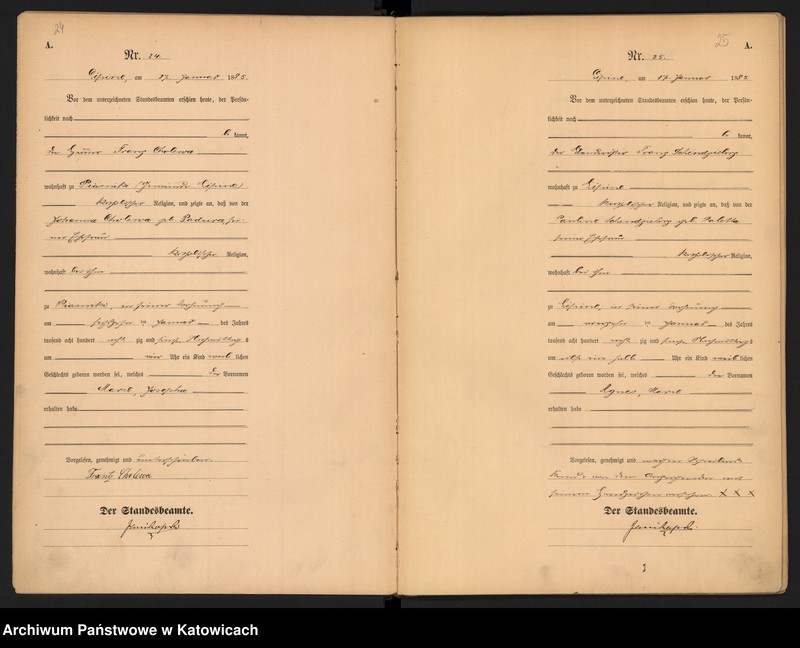 24
A.
Nr. 24.
Lipine, am 17. Januar 1885.
Vor dem unterzeichneten Standesbeamten erschien heute, der Persön-
lichkeit nach
be kannt,
der Franz Cholewa
wohnhaft zu Piasniki (Gemeinde Lipine)
katholischer Religion, und zeigte an, daß von der
Johanna Cholewa geb. sei-
ner Ehefrau
katholischer Religion,
wohnhaft bei ihm
zu Piasniki, in seiner Wohnung
am Januar des Jahres
tausend acht hundert acht zig und fünf Nachmittags
um vier Uhr ein Kind weib lichen
Geschlechts geboren worden sei, welches die Vornamen
Marie, Josepha
erhalten habe
Vorgelesen, genehmigt und unterschrieben
Franz Cholewa
Der Standesbeamte.
25
A.
Nr. 25.
Lipine, am 17. Januar 1885.
Vor dem unterzeichneten Standesbeamten erschien heute, der Persön-
lichkeit nach
be kannt,
der Franz
wohnhaft zu Lipine
katholischer Religion, und zeigte an, daß von der
Pauline geb.
seiner Ehefrau
katholischer Religion,
wohnhaft bei ihm
zu Lipine, in seiner Wohnung
am Januar des Jahres
tausend acht hundert acht zig und fünf Nachmittags
um elf ein halb Uhr ein Kind weib lichen
Geschlechts geboren worden sei, welches die Vornamen
Agnes, Marie
erhalten habe
Vorgelesen, genehmigt und wegen
von dem Anzeigenden mit
seinem Handzeichen versehen X X X
Der Standesbeamte.
Archiwum Państwowe w Katowicach